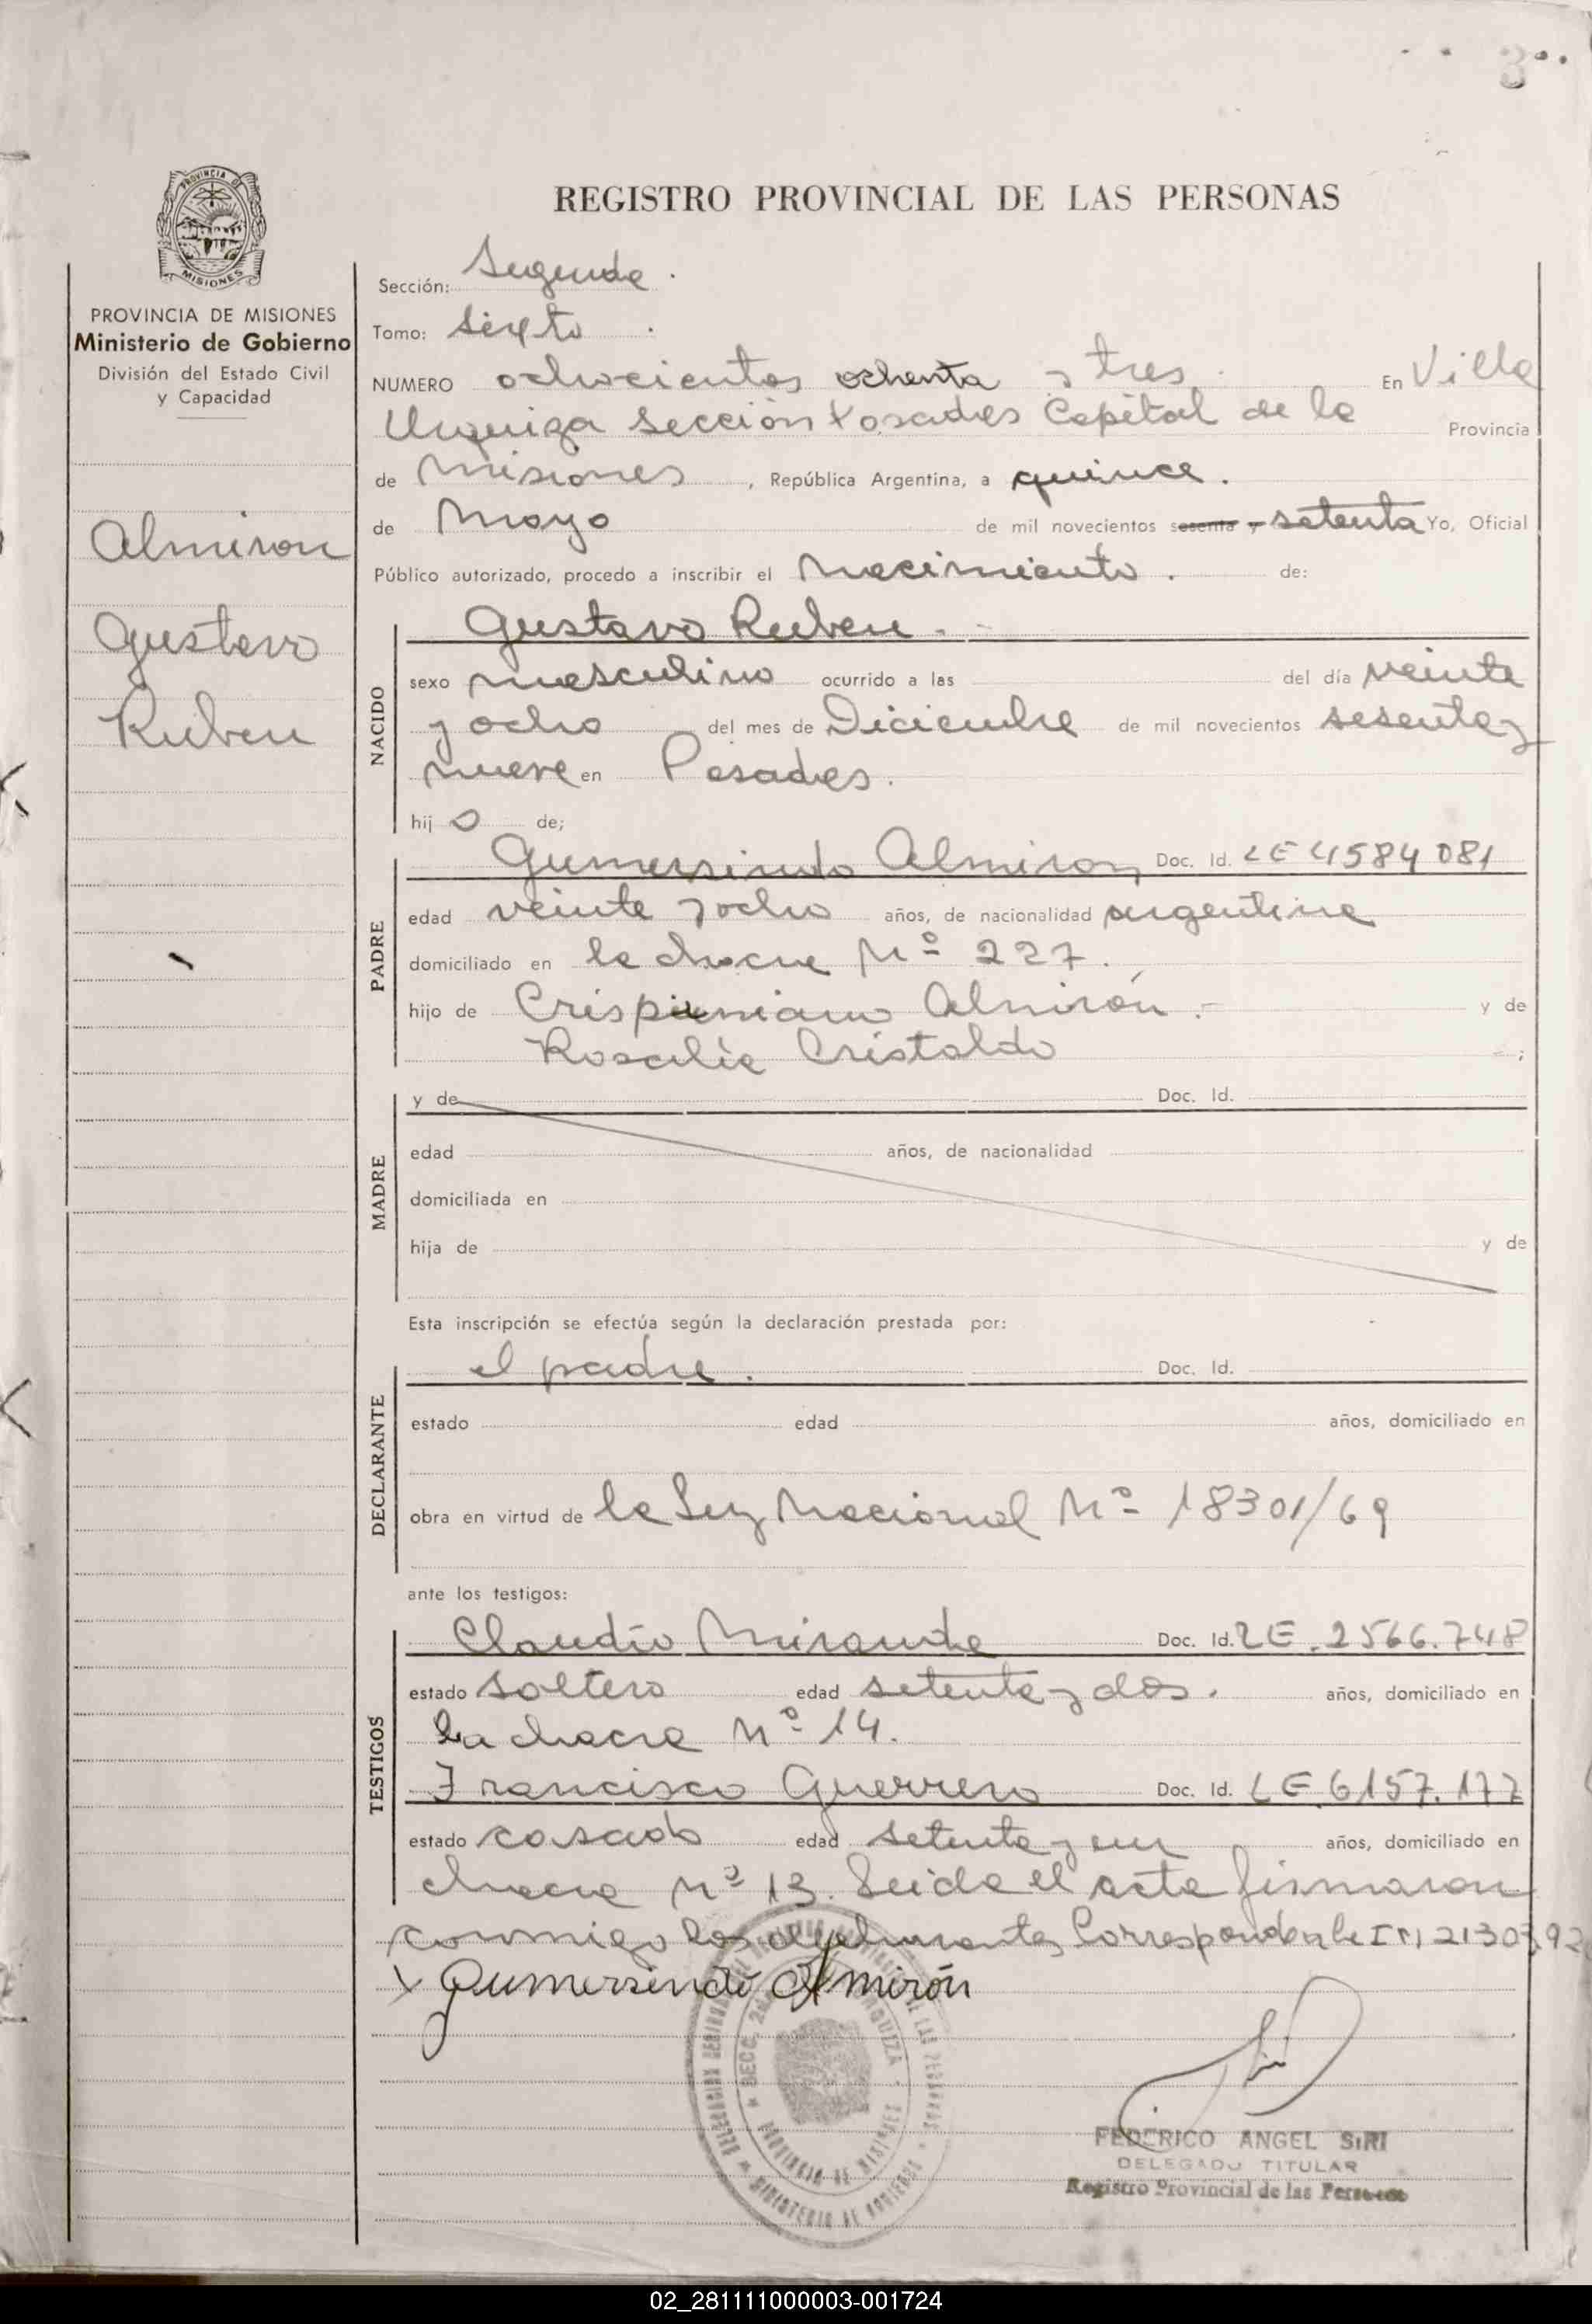 REGISTRO PROVINCIAL DE LAS PERSONAS
PROVINCIA DE MISIONES
Ministerio de Gobierno
División del Estado Civil
y Capacidad
Almiron
Gustavo
Ruben
Sección: Segunda.
Tomo: Sexto.
NUMERO ochocientos ochenta y tres. En Villa
Urquiza Sección Posadas Capital de la Provincia
de Misiones, República Argentina, a quince.
de Mayo de mil novecientos sesenta y setenta Yo, Oficial
Público autorizado, procedo a inscribir el Nacimiento. de:
NACIDO
Gustavo Ruben.-
sexo masculino ocurrido a las del día veinte
y ocho del mes de Diciembre de mil novecientos sesenta y
nueve en Posadas.
hijo de;
PADRE
Gumersindo Almiron Doc. Id. LE 4584081
edad veinte y ocho años, de nacionalidad argentina
domiciliado en la chacra Nº 227.
hijo de Crispiniano Almirón.- y de
Rosalia Cristaldo ;
MADRE
y de Doc. Id.
edad años, de nacionalidad
domiciliada en
hija de y de
Esta inscripción se efectúa según la declaración prestada por:
DECLARANTE
el padre. Doc. Id.
estado edad años, domiciliado en
obra en virtud de la Ley Nacional Nº 18301/69
ante los testigos:
TESTIGOS
Claudio Miranda Doc. Id. LE.2566.748
estado soltero edad setenta y dos. años, domiciliado en
la chacra Nº 14.
Francisco Guerrero Doc. Id. LE.6157.177
estado casado edad setenta y un años, domiciliado en
chacra Nº 13. Leida el acta firmaron
conmigo los Corresponden le I M 21303.92
Gumersindo Almirón
SECC. 2da
PROVINCIA DE MISIONES
MINISTERIO DE GOBIERNO
FEDERICO ANGEL SIRI
DELEGADO TITULAR
Registro Provincial de las Personas
02_281111000003-001724